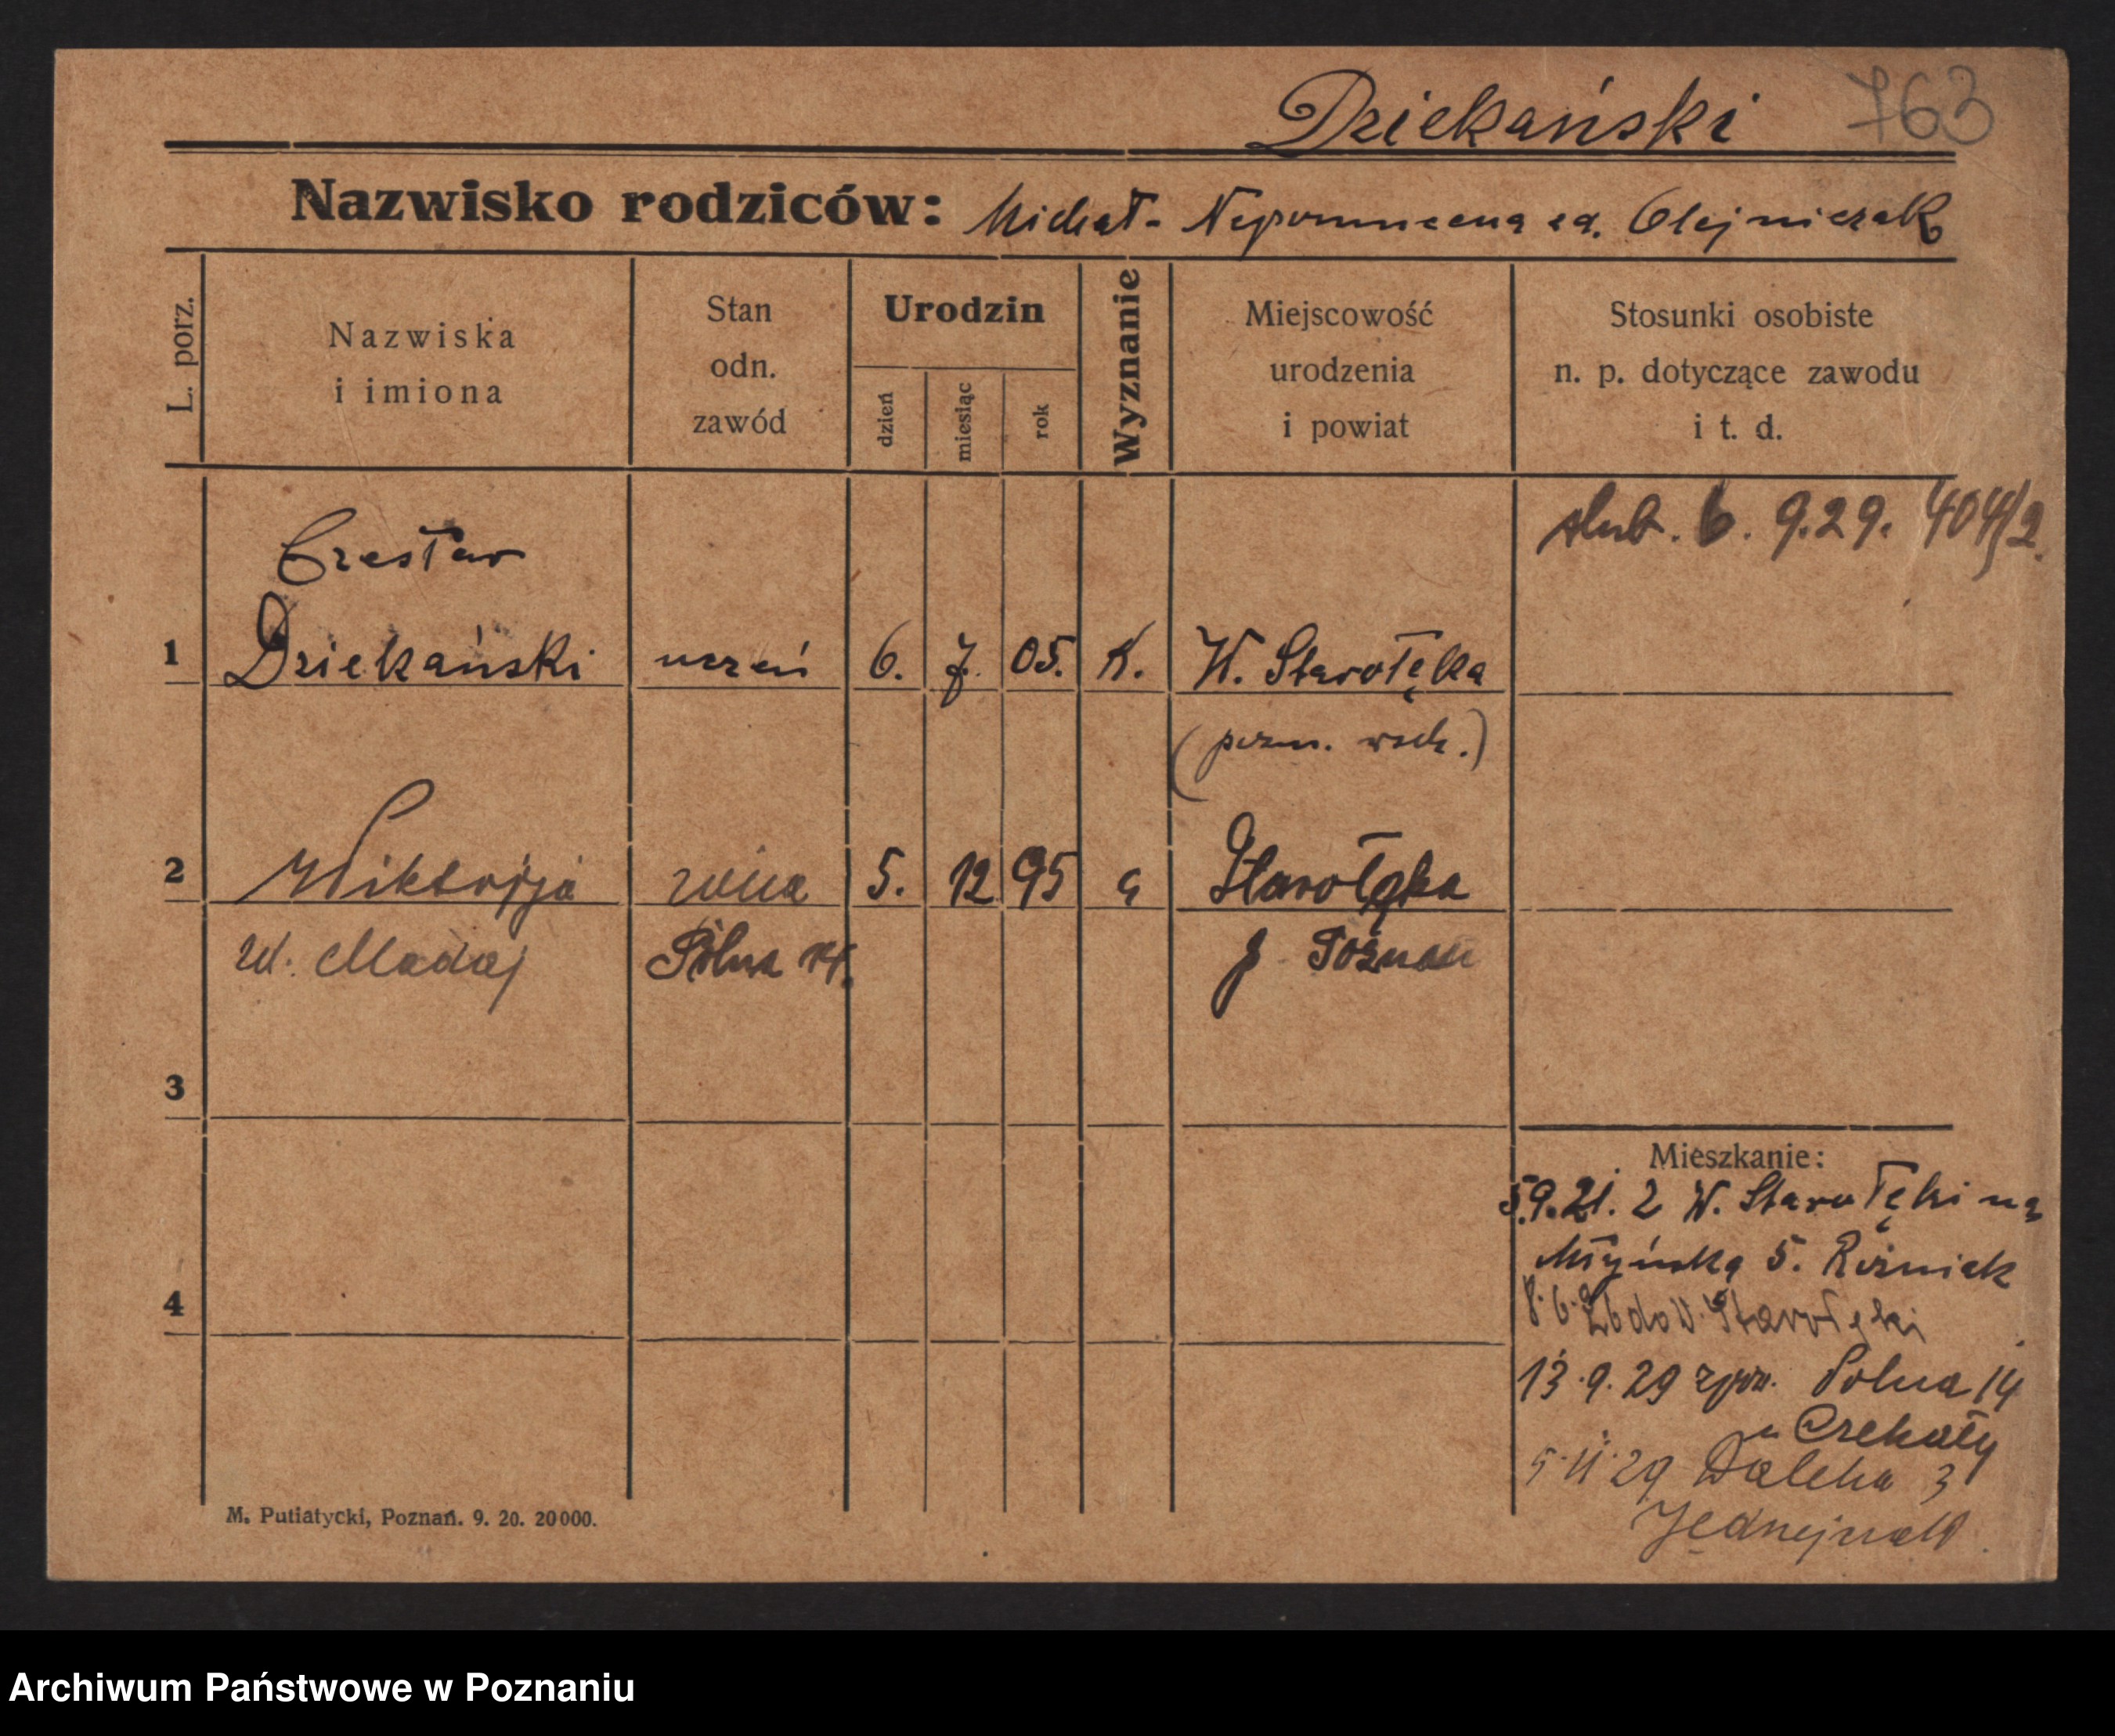 Dziekański 763
Nazwisko rodziców: Michał - Nepomucena zd. Olejniczak
L. porz.
Nazwiska
i imiona
Stan
odn.
zawód
Urodzin
dzień
miesiąc
rok
Wyznanie
Miejscowość
urodzenia
i powiat
Stosunki osobiste
n. p. dotyczące zawodu
i t. d.
ślub. 6. 9.29. 404/2.
Czesław
1 Dziekański uczeń 6. 7. 05. K. W. Starołęka
(pozn. wsch.)
2 Wiktorja żona 5. 12 95 Starołęka
zd. Madaj Polna 14. p. Poznań
3
4
Mieszkanie:
5.9.21. z W. Starołęki na
Młyńską 5. Rozmiak
8.6.26 do W. Starołęki
13.9.29 Polna 14
u Czekały
5.11.29 Daleka 3
M. Putiatycki, Poznań. 9. 20. 20000.
Archiwum Państwowe w Poznaniu